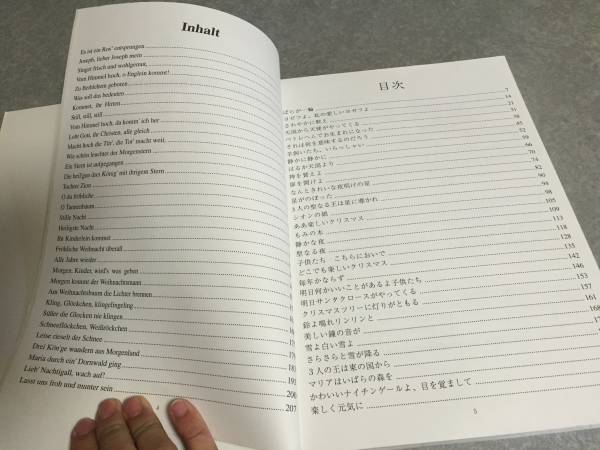 Inhalt
Es ist ein Ros' entsprungen
Joseph, lieber Joseph mein
Singet frisch und wohlgemut,
Vom Himmel hoch, o Englein kommt!
Zu Bethlehem geboren
Was soll das bedeuten
Kommet, ihr Hirten
Still, still, still
Vom Himmel hoch, da komm' ich her
Lobt Gott, ihr Christen, alle gleich
Macht hoch die Tür, die Tor' macht weit,
Wie schön leuchtet der Morgenstern
Ein Stern ist aufgegangen
Die heil'gen drei König' mit ihrigem Stern
Tochter Zion
O du fröhliche
O Tannenbaum
Stille Nacht
Heiligste Nacht
Ihr Kinderlein kommet
Fröhliche Weihnacht überall
Alle Jahre wieder
Morgen, Kinder, wird's was geben
Morgen kommt der Weihnachtsmann
Am Weihnachtsbaum die Lichter brennen
Kling, Glöckchen, klingelingeling
Süßer die Glocken nie klingen
Schneeflöckchen, Weißröckchen
Leise rieselt der Schnee
Drei Kön'ge wandern aus Morgenland
Maria durch ein' Dornwald ging
Lieb' Nachtigall, wach auf! 195
Lasst uns froh und munter sein 207
4
目次
ばらが一輪 7
ヨゼフよ、私の愛しいヨゼフよ 14
さわやかに歌え 21
天国から天使がやってくる 31
ベトレヘムでお生まれになった 38
それは何を意味するのだろう 45
羊飼いたち、いらっしゃい 52
静かに静かに 59
はるか天国より 66
神を賛えよ 70
扉を開けよ 74
なんときれいな夜明けの星 82
星がのぼった 90
3人の聖なる王は星に導かれ 94
シオンの娘 98
ああ楽しいクリスマス 105
もみの木 109
静かな夜 113
聖なる夜 118
子供たち こちらにおいで 128
どこでも楽しいクリスマス 135
毎年かならず 142
明日何かいいことがあるよ子供たち 146
明日サンタクロースがやってくる 153
クリスマスツリーに灯りがともる 157
鈴よ鳴れリンリンと 161
美しい鐘の音が 168
雪よ白い雪よ
さらさらと雪が降る
3人の王は東の国から
マリアはいばらの森を
かわいいナイチンゲールよ、目を覚まして
楽しく元気に
5